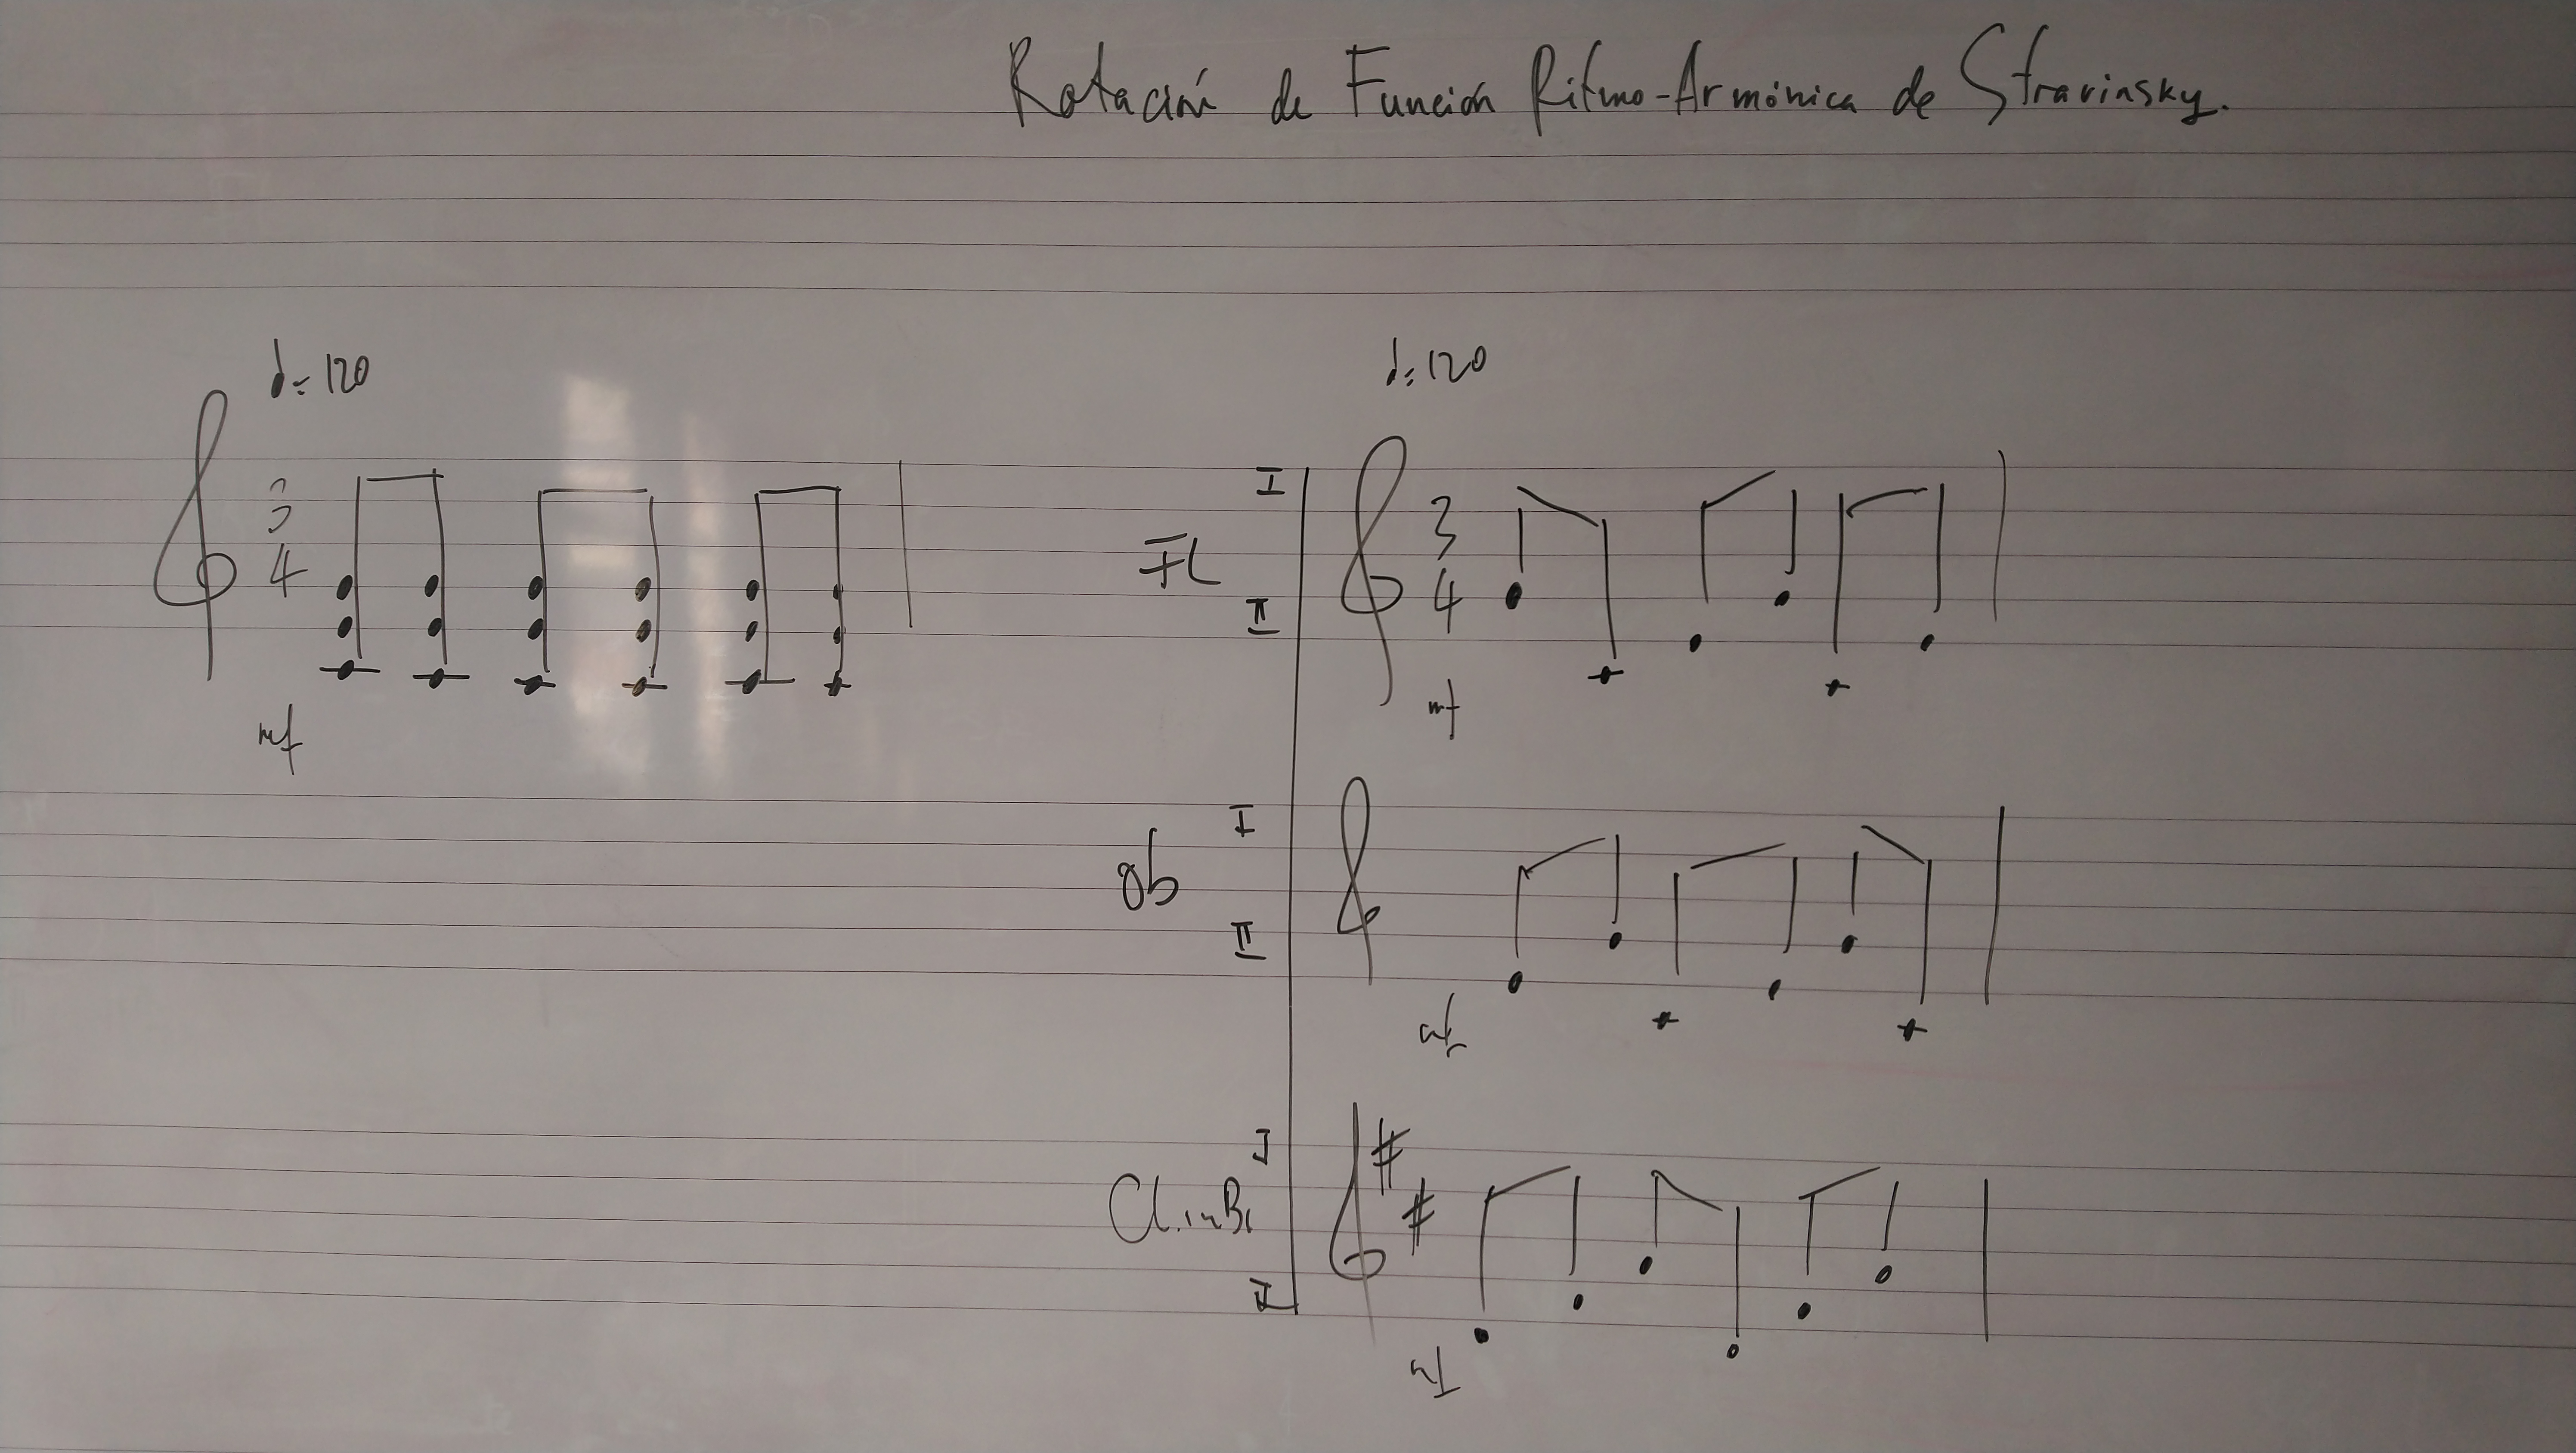 Rotación de Función Ritmo-Armónica de Stravinsky.
♩=120
3
4
mf
♩=120
Fl
I
II
3
4
mf
Ob
I
II
mf
Cl. in B♭
I
II
♯
♯
mf